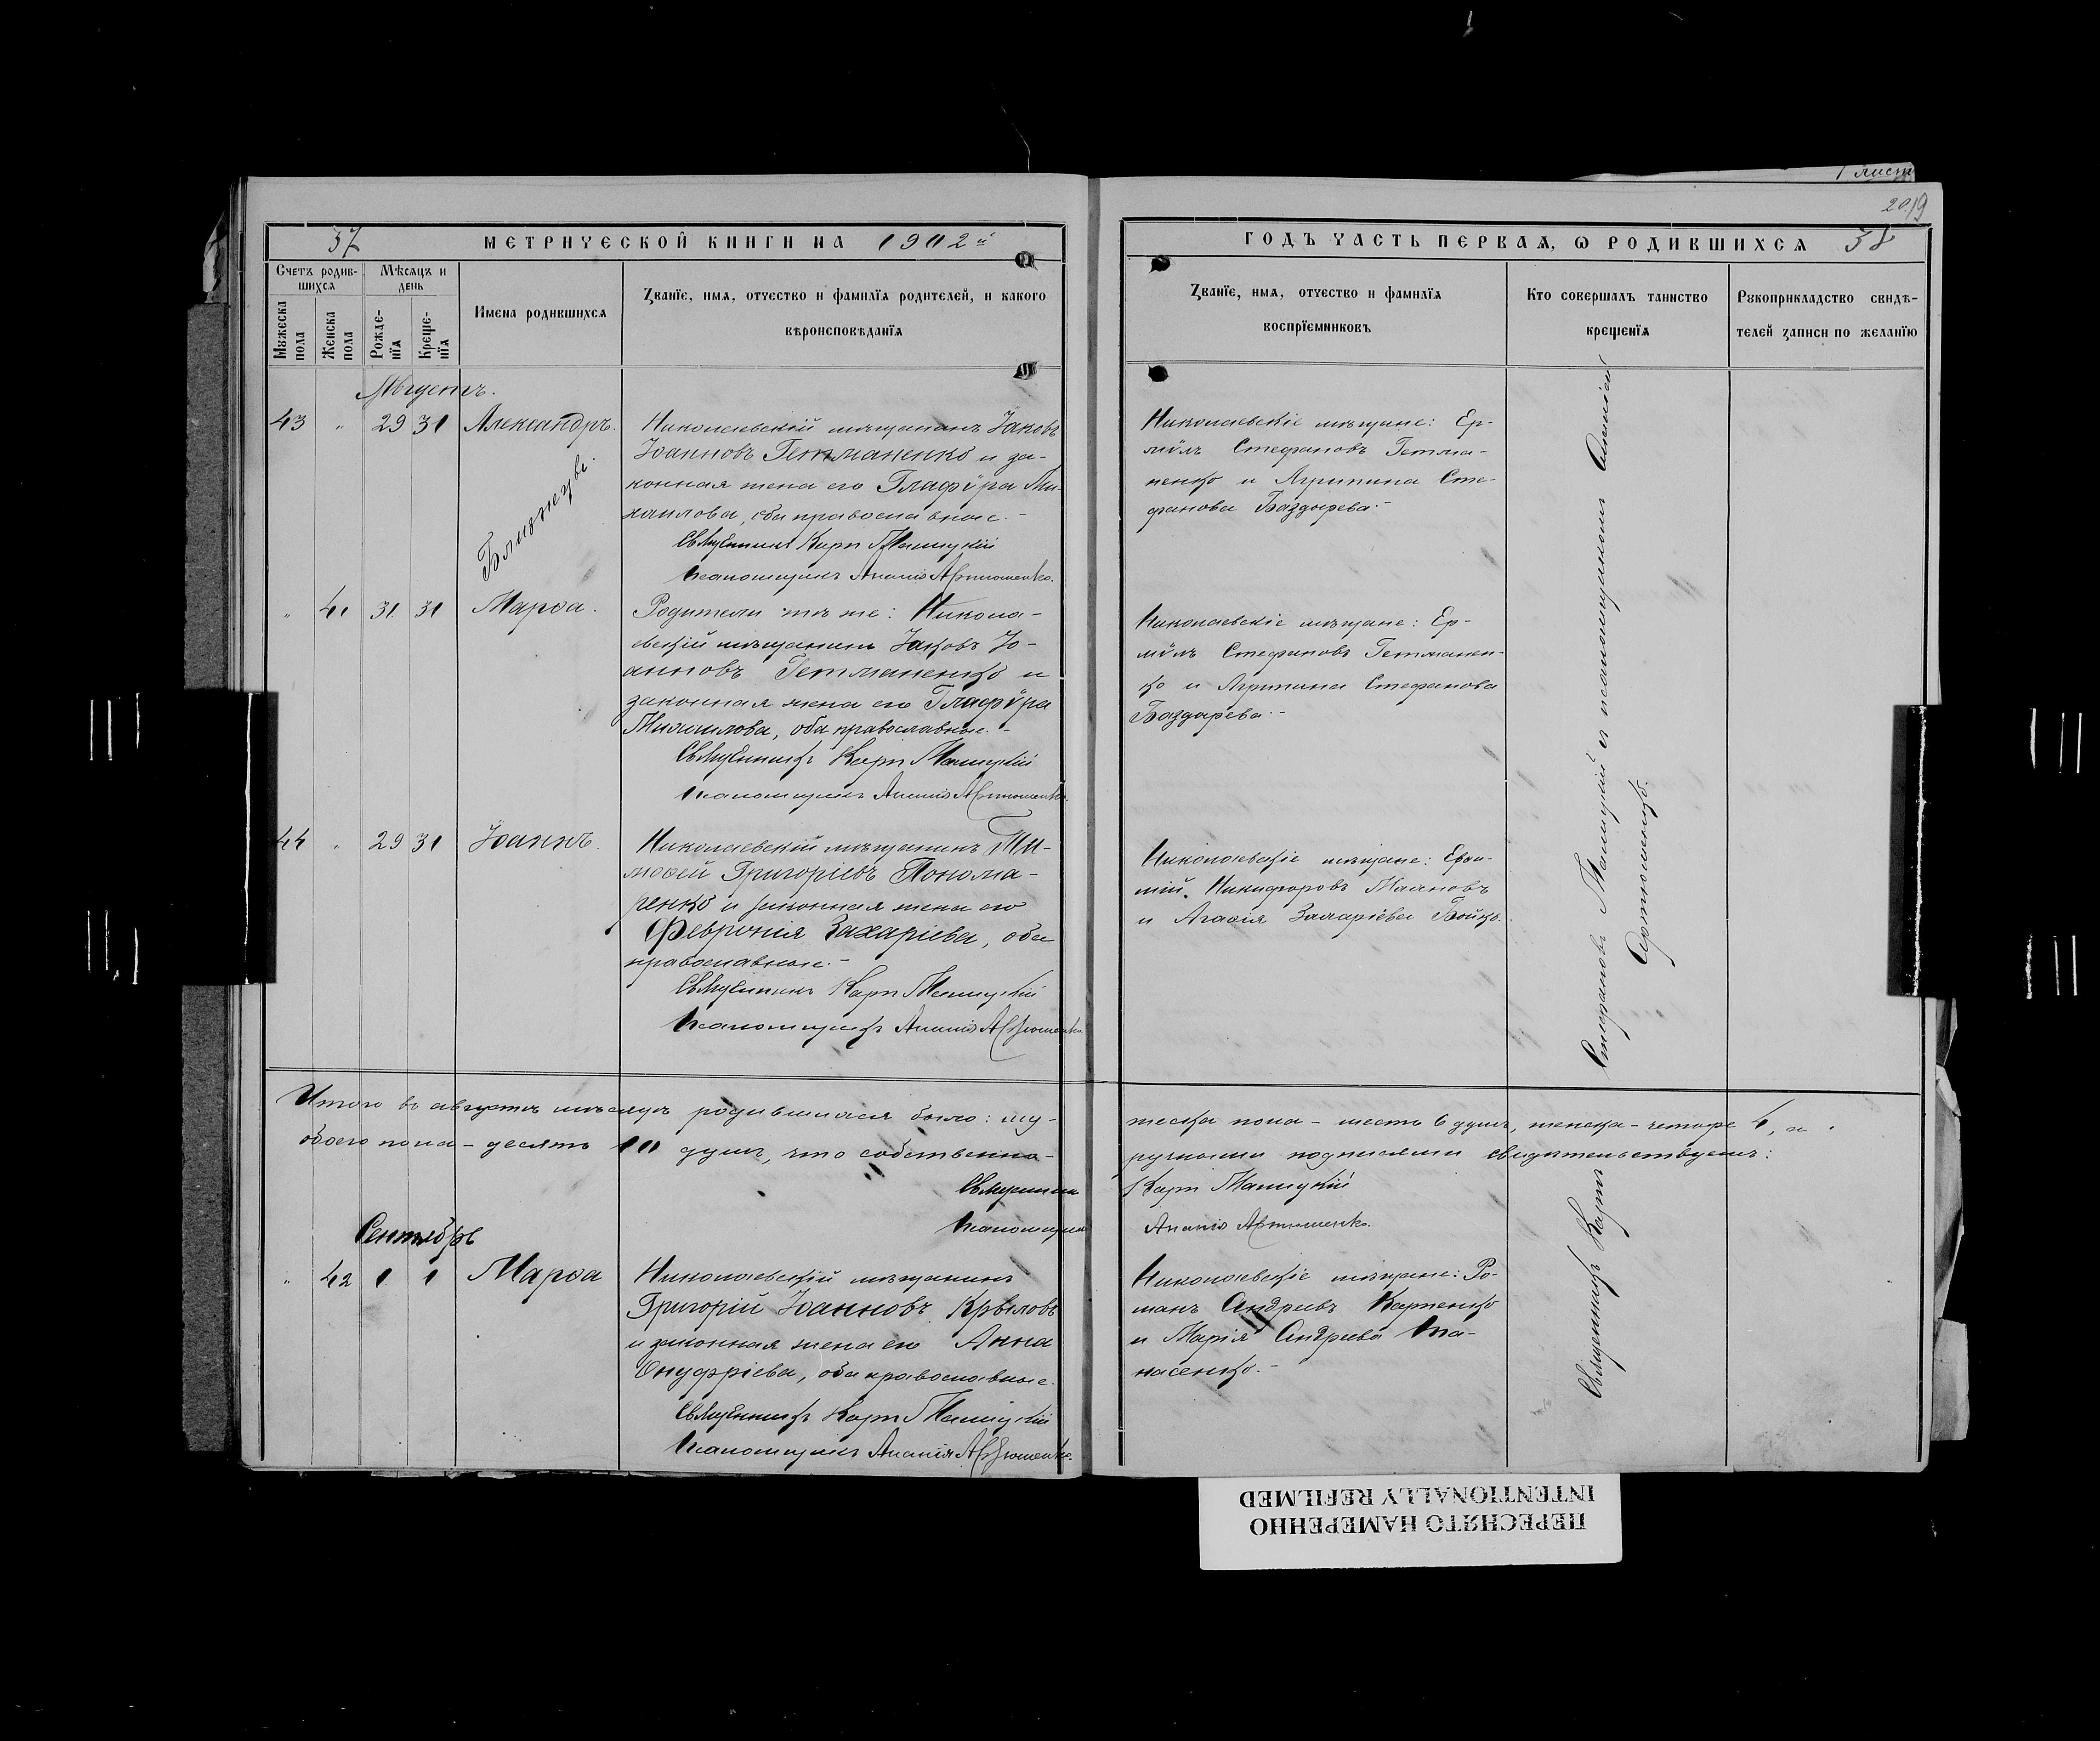 1 лист
20 19
37
МЕТРИЧЕСКОЙ КНИГИ НА 1902 й
Счетъ родив-
шихся
Мѣсяцъ и
день
Мужеска
пола
Женска
пола
Рожде-
нїя
Креще-
нїя
Имена родившихся
Званїе, имя, отчество и фамилїя родителей, и какого
вѣроисповѣданїя
Августъ.
43 " 29 31 Александръ.
Близнецы.
Николаевскій мѣщанинъ Іаковъ
Іоанновъ Гетманенко и за-
конная жена его Глафѵра Ми-
хаилова, оба православные.-
Священникъ Карп Малицкій
Псаломщикъ Ананія Артюменко.
" 41 31. 31 Марѳа.
Родители тѣ же: Никола-
евскій мѣщанинъ Іаковъ Іо-
анновъ Гетманенко и
законная жена его Глафѵра
Михаилова, оба православные.-
Священникъ Карп Малицкій
Псаломщикъ Ананія Артюменко.
44 " 29 31 Іоаннъ.
Николаевскій мѣщанинъ Ти-
моѳей Григоріевъ Понома-
ренко и законная жена его
Феврония Захаріева, оба
православные.-
Священникъ Карп Малицкій
Псаломщикъ Ананія Артюменко
Итого въ августѣ мѣсяцѣ родившихся было: му-
обоего пола - десять 10 душъ, что собственно-
Священникъ
Псаломщикъ
Сентябрь
" 42 1 1 Марѳа
Николаевскій мѣщанинъ
Григорій Іоанновъ Крыловъ
и законная жена его Анна
Онуфріева, оба православные.
Священникъ Карп Малицкій
Псаломщикъ Ананія Артюменко.
ГОДЪ ЧАСТЬ ПЕРВАЯ, Ѡ РОДИВШИХСЯ 38
Званїе, имя, отчество и фамилїя
воспрїемниковъ
Кто совершалъ таинство
крещенїя
Рукоприкладство свидѣ-
телей записи по желанїю
Николаевскіе мѣщане: Ер-
мѵлъ Стефановъ Гетма-
ненко и Агрипина Сте-
фанова Баздырева.-
Николаевскіе мѣщане: Ер-
мѵлъ Стефановъ Гетманен-
ко и Агрипина Стефанова
Баздырева.-
Николаевскіе мѣщане:
Никифоровъ
и Агаѳія Захаріева Бойко.
жеска пола - шесть 6 душъ, женска - четыре 4, и
ручными подписями свидѣтельствуемъ:
Карп Малицкій
Ананія Артюменко.
Николаевскіе мѣщане: Ро-
манъ Андреевъ Карпенко
и Марія Андреева Па-
насенко.-
Священникъ Карпъ
Стефановъ Малицкій съ псаломщикомъ Ананіей
Артюменко.
ПЕРЕСНЯТО НАМЕРЕННО
INTENTIONALLY REFILMED